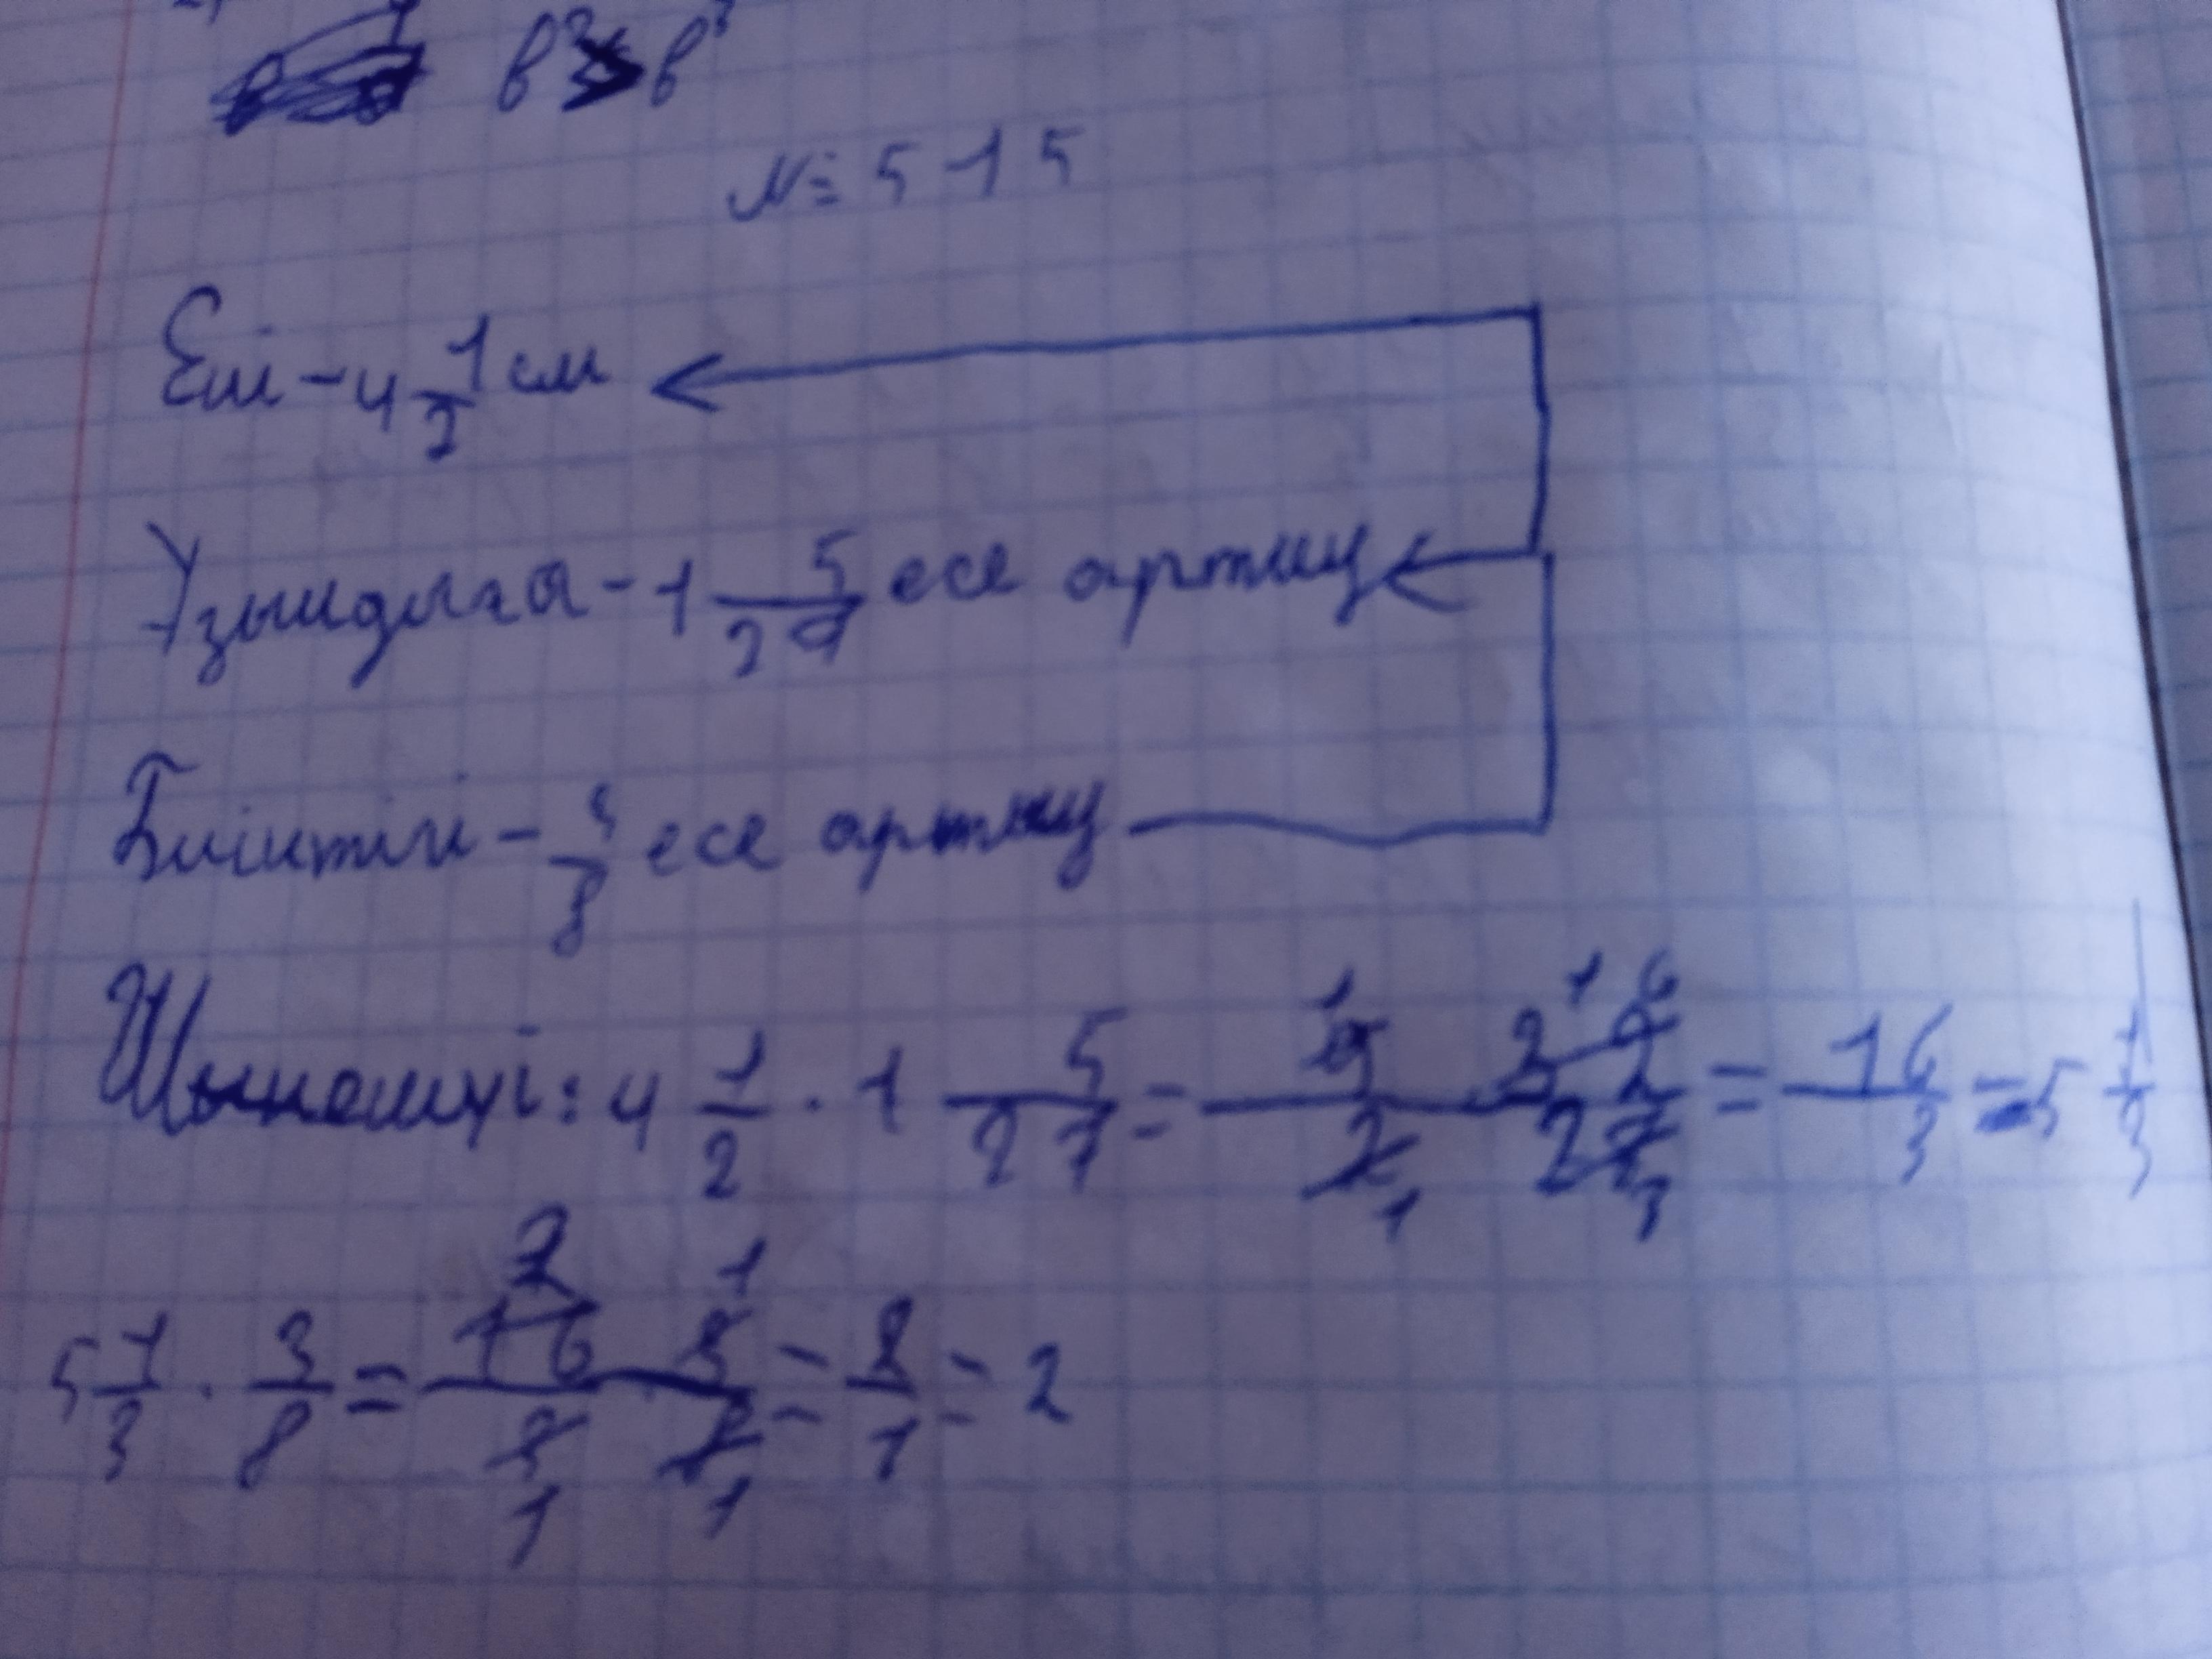 в³ > в³
№ 515
Ені - 4 1/2 см
Ұзындығы - 1 5/27 есе артық
Биіктігі - 3/8 есе артық
Шығарылуы: 4 1/2 · 1 5/27 = 9/2 · 32/27 = 16/3 = 5 1/3
5 1/3 · 3/8 = 16/3 · 3/8 = 2/1 = 2